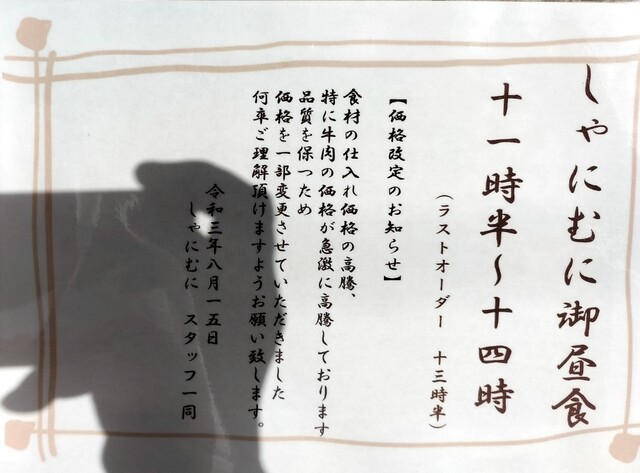 しゃにむに御昼食
十一時半～十四時
(ラストオーダー 十三時半)
【価格改定のお知らせ】
食材の仕入れ価格の高騰、
特に牛肉の価格が急激に高騰しております
品質を保つため
価格を一部変更させていただきました
何卒ご理解頂けますようお願い致します。
令和三年八月一五日
しゃにむに スタッフ一同